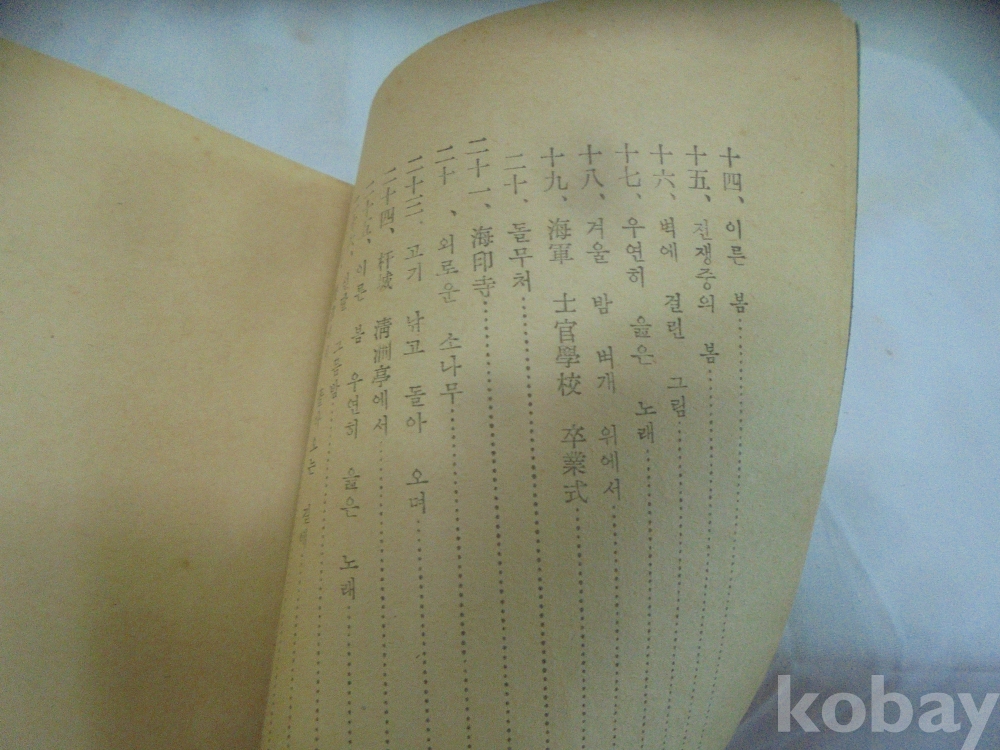 十四、이른 봄
十五、전쟁중의 봄
十六、벽에 걸린 그림
十七、우연히 읊은 노래
十八、겨울 밤 벼개 위에서
十九、海軍 士官學校 卒業式
二十、돌무처
二十一、海印寺
二十 、외로운 소나무
二十三、고기 낚고 돌아 오며
二十四、杆城 淸澗亭에서
이른 봄 우연히 읊은 노래
그믐밤
kobay